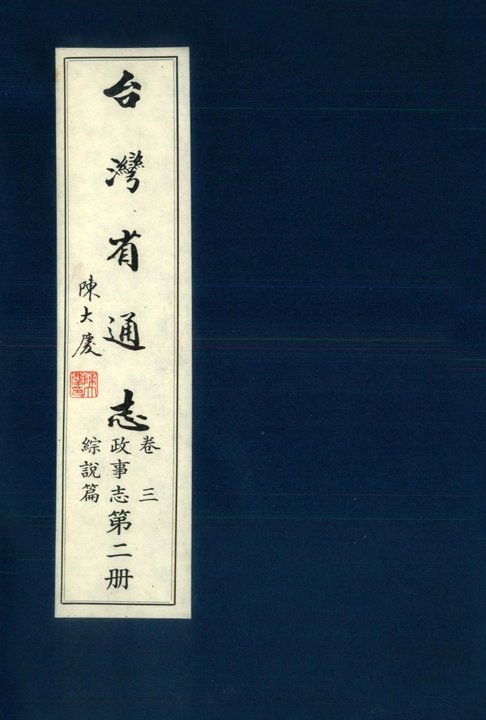 台灣省通志
卷三
政事志
綜說篇
第二册
陳大慶